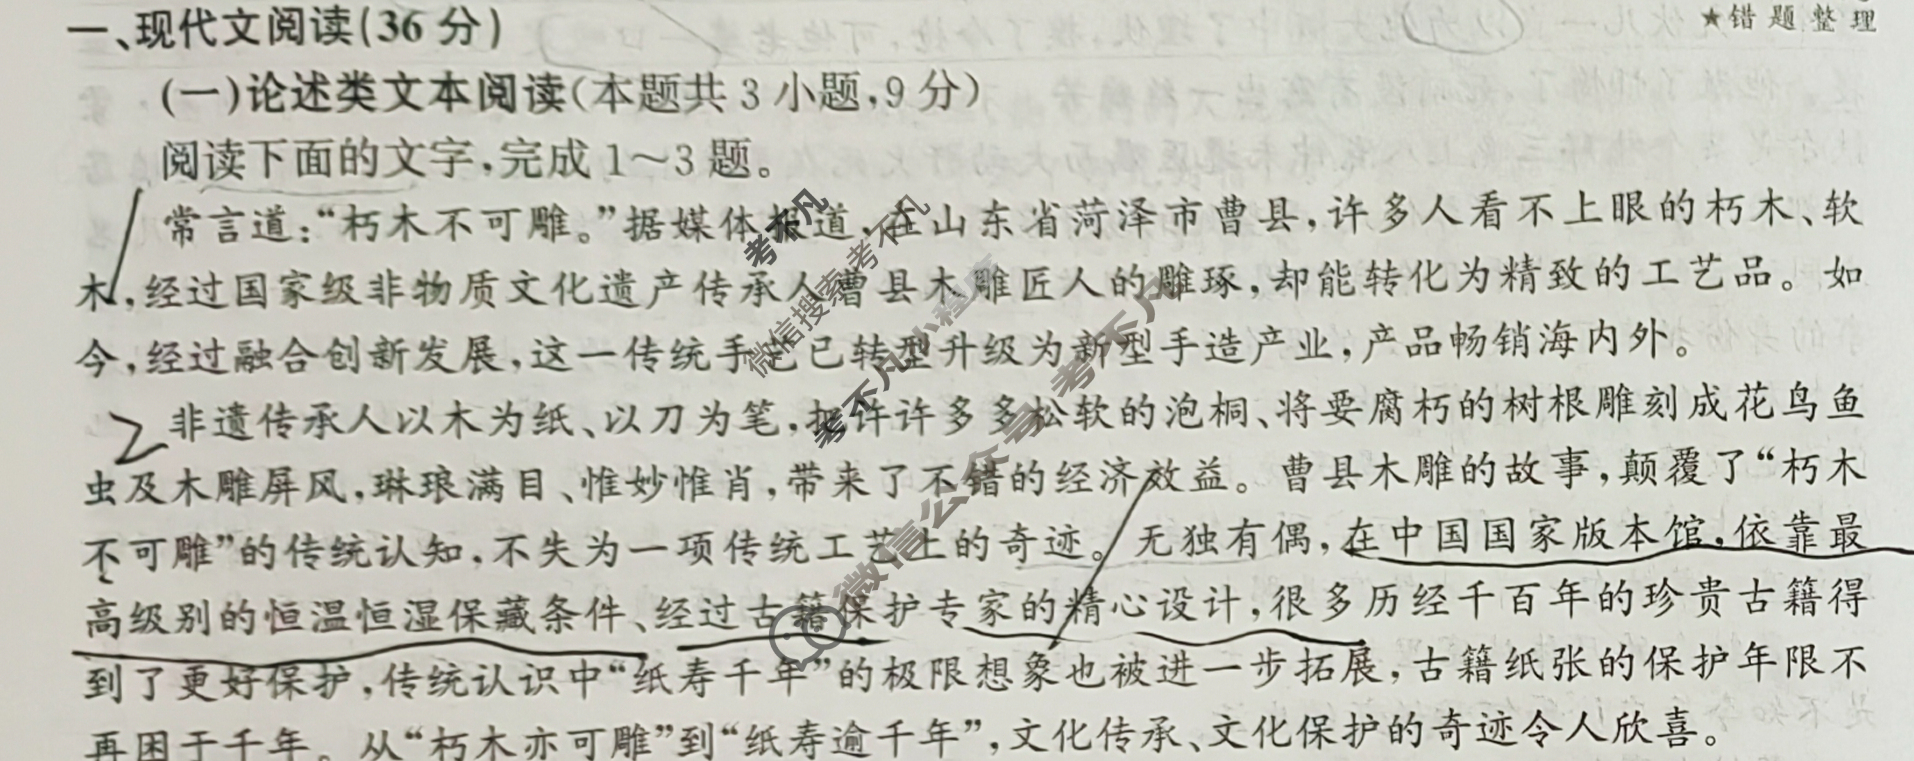 ★错题整理
一、现代文阅读(36分)
(一)论述类文本阅读(本题共3小题,9分)
阅读下面的文字,完成1～3题。
常言道:“朽木不可雕。”据媒体报道,在山东省菏泽市曹县,许多人看不上眼的朽木、软
木,经过国家级非物质文化遗产传承人曹县木雕匠人的雕琢,却能转化为精致的工艺品。如
今,经过融合创新发展,这一传统手艺已转型升级为新型手造产业,产品畅销海内外。
非遗传承人以木为纸、以刀为笔,把许许多多松软的泡桐、将要腐朽的树根雕刻成花鸟鱼
虫及木雕屏风,琳琅满目、惟妙惟肖,带来了不错的经济效益。曹县木雕的故事,颠覆了“朽木
不可雕”的传统认知,不失为一项传统工艺上的奇迹。无独有偶,在中国国家版本馆,依靠最
高级别的恒温恒湿保藏条件、经过古籍保护专家的精心设计,很多历经千百年的珍贵古籍得
到了更好保护,传统认识中“纸寿千年”的极限想象也被进一步拓展,古籍纸张的保护年限不
再困于千年。从“朽木亦可雕”到“纸寿逾千年”,文化传承、文化保护的奇迹令人欣喜。
考不凡
微信搜索考不凡
考不凡小程序
微信公众号考不凡